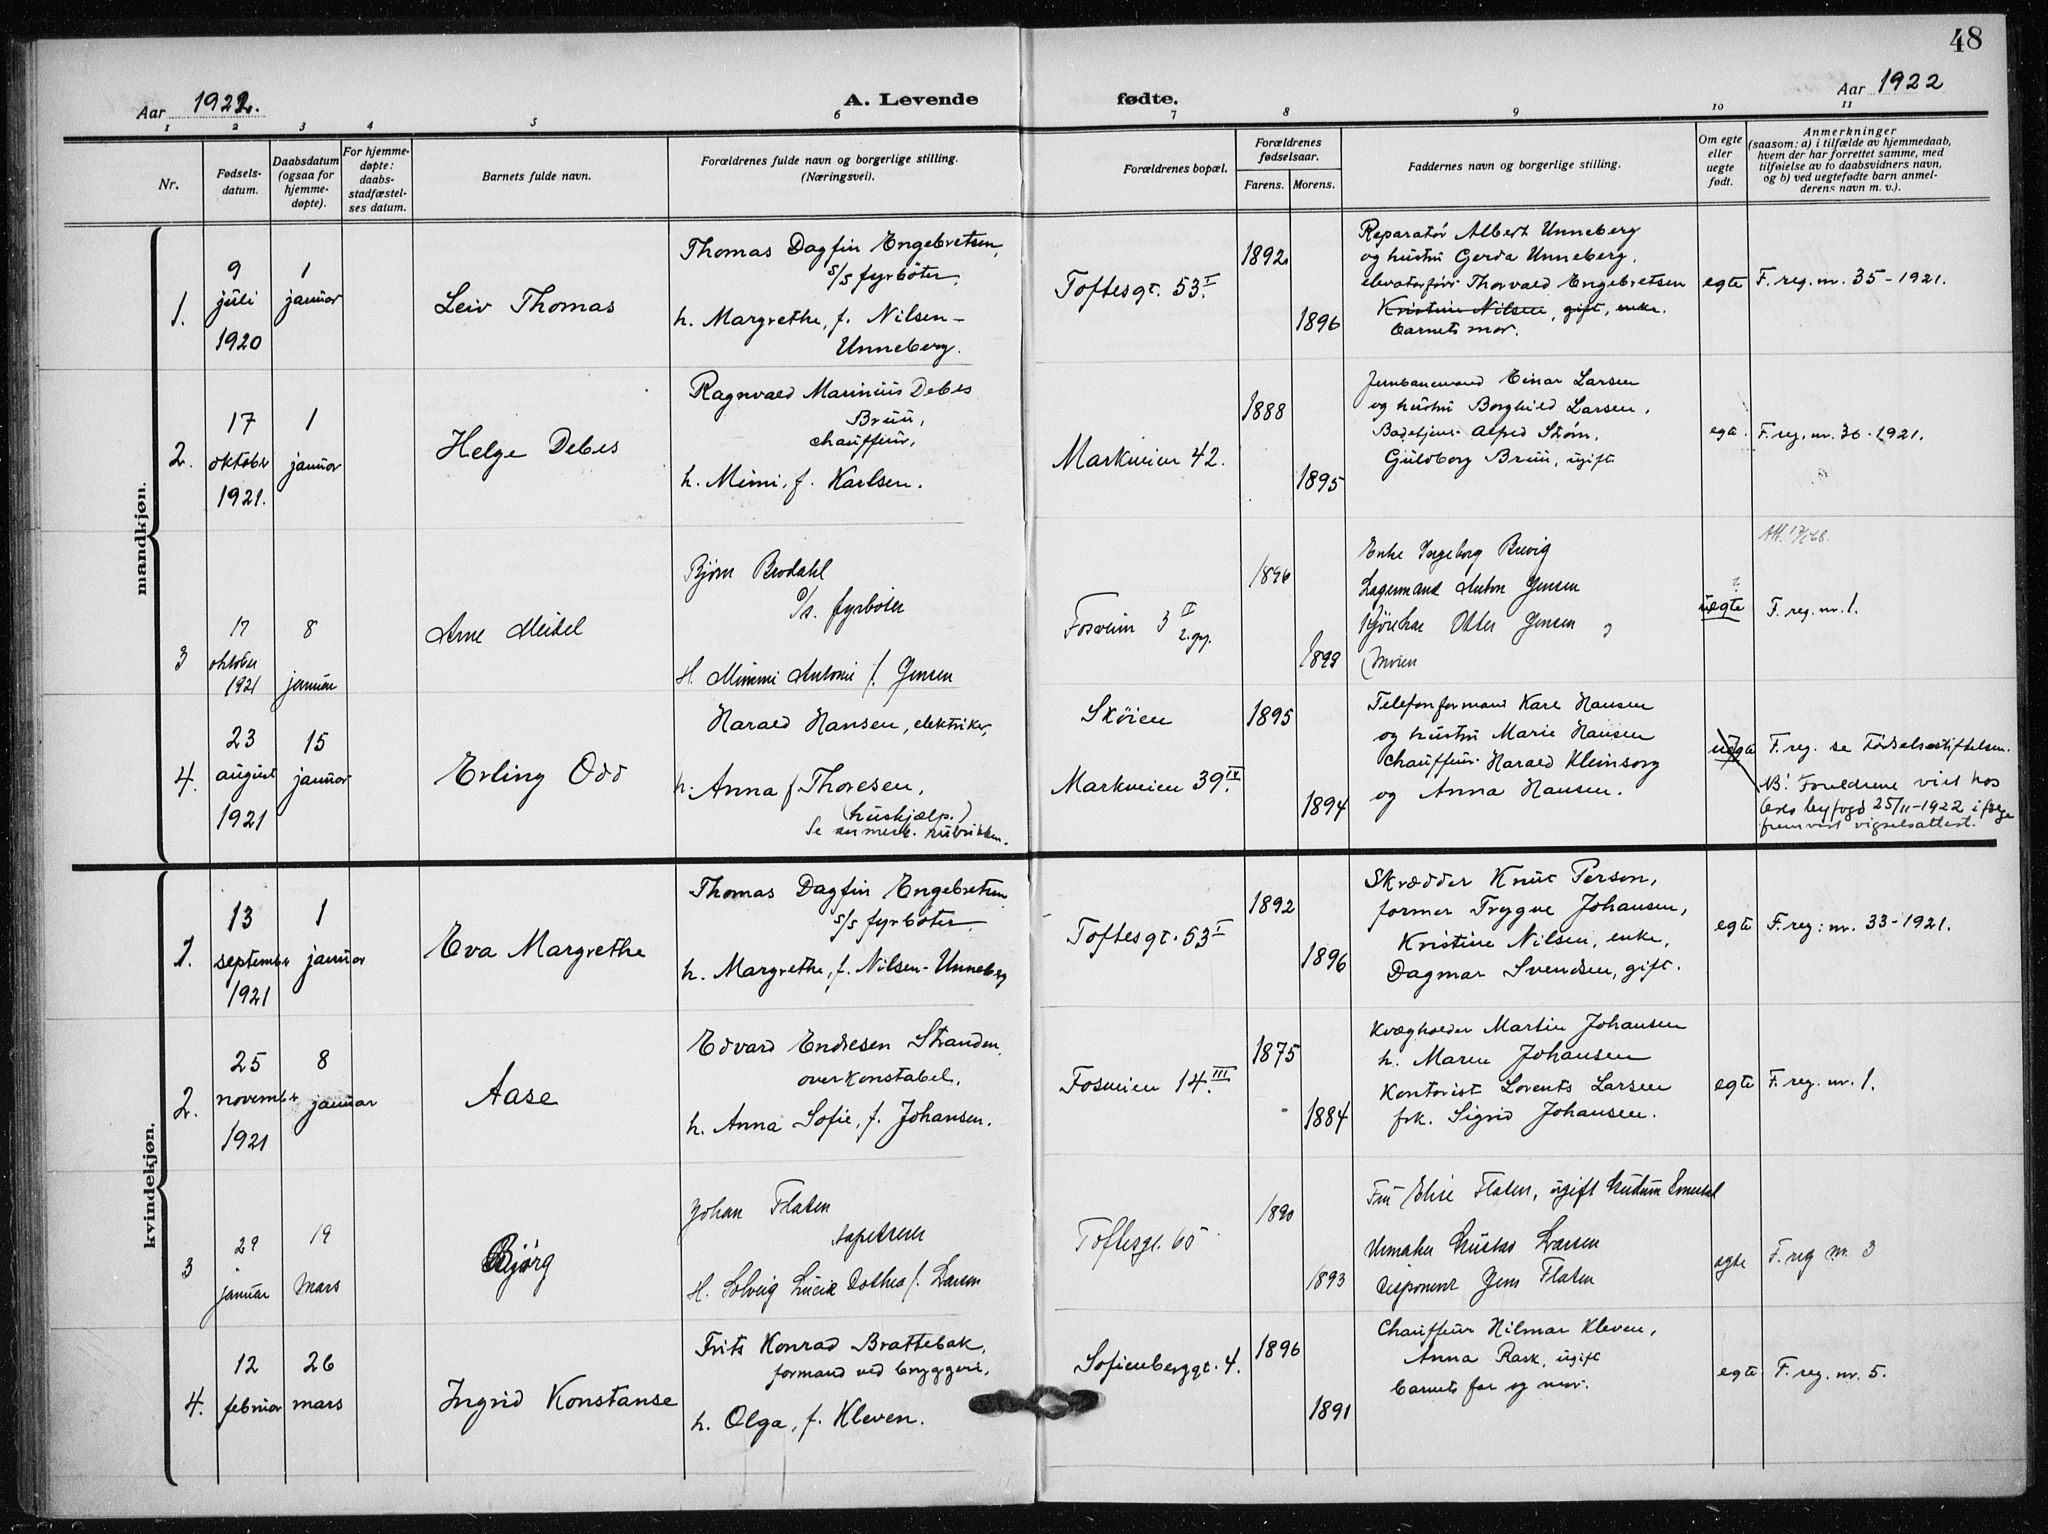 48
Aar 1922.
A. Levende
fødte.
Aar 1922
1 2 3 4 5 6 7 8 9 10 11
Nr.
Fødsels-
datum.
Daabsdatum
(ogsaa for
hjemme-
døpte).
For hjemme-
døpte:
daabs-
stadfæstel-
ses datum.
Barnets fulde navn.
Forældrenes fulde navn og borgerlige stilling.
(Næringsvei).
Forældrenes bopæl.
Forældrenes
fødselsaar.
Farens. Morens.
Faddernes navn og borgerlige stilling.
Om egte
eller
uegte
født.
Anmerkninger
(saasom: a) i tilfælde av hjemmedaab,
hvem der har forrettet samme, med
tilføielse av to daabsvidners navn,
og b) ved uegtefødte barn anmel-
derens navn m. v.).
mandkjøn.
1.
9
juli
1920
1
januar
Leiv Thomas
Thomas Dagfin Engebretsen,
s/s fyrbøter,
h. Margrethe, f. Nilsen-
Unneberg.
Toftesgt. 53 I.
1892
1896
Reparatør Albert Unneberg
og hustru Gerda Unneberg,
elevatorfører Thorvald Engebretsen
Kristine Nilsen, gift, enke.
barnets mor.
egte
F. reg. nr. 35 - 1921.
2.
17
oktober
1921.
1
januar
Helge Debes
Ragnvald Marinius Debes
Bruu,
chauffeur,
h. Mimi, f. Karlsen.
Markveien 42.
1888
1895
Jernbanemand Einar Larsen
og hustru Borghild Larsen,
Alfred Storm.
Guldborg Bruu, ugift
egte.
F. reg. nr. 36 - 1921.
3
17
oktober
1921
8
januar
Arne Meidel
Bjørn Brodahl
fyrbøter
H. Mimmi Antonie f. Jensen
Fosveien 3 II
2. opg.
1896
1899
Enke Ingeborg Bevig
Lagermand Anton Jensen
Otter Jensen
Moren
uegte
Att.
F. reg. nr. 1.
4.
23
august
1921
15
januar
Erling Odd
Harald Hansen, elektriker,
h. Anna f Thoresen,
(hushjælp.)
Se anmerk. rubrikken.
Skøien
Markveien 39 IV.
1895
1894
Telefonformand Kare Hansen
og hustru Marie Hansen
Chauffeur Harald Kleinsorg
og Anna Hansen.
uegte
F. reg. se Fødselsstiftelsen.
NB! Foreldrene viet hos
Oslo byfogd 25/11-1922 ifølge
fremvist vigselsattest.
kvindekjøn.
1.
13
september
1921
1
januar
Eva Margrethe
Thomas Dagfin Engebretsen
s/s fyrbøter,
h. Margrethe, f. Nilsen-Unneberg
Toftesgt. 53 I
1892
1896
Skrædder Knut Person,
former Trygve Johansen,
Kristine Nilsen, enke,
Dagmar Svendsen, gift.
egte
F. reg: nr. 33 - 1921.
2.
25
november
1921
8
januar
Aase
Edvard Endresen Stranden,
overkonstabel,
h. Anna Sofie, f. Johansen.
Fosveien 14 III.
1875
1884
Kvægholder Martin Johansen
h. Maren Johansen
Kontorist Lorents Larsen
frk. Sigrid Johansen.
egte
F. reg. nr. 1.
3
29
januar
19
Mars
Bjørg
Johan Flaten
tapetserer
H. Solveig Lucie Dothea f. Larsen
Toftesgt. 65
1890
1893
Fru Elise Flaten, ugift
Urmaker Gustav Larsen
Disponent Jens Flaten
egte
F. reg nr. 3
4.
12
februar
26
mars
Ingrid Konstanse
Frits Konrad Brattebak,
formand ved bryggeri,
h. Olga, f. Kleven.
Sofienberggt. 4.
1896
1891
Chauffeur Hilmar Kleven,
Anna Rask, ugift
barnets far og mor.
egte
F. reg. nr. 5.